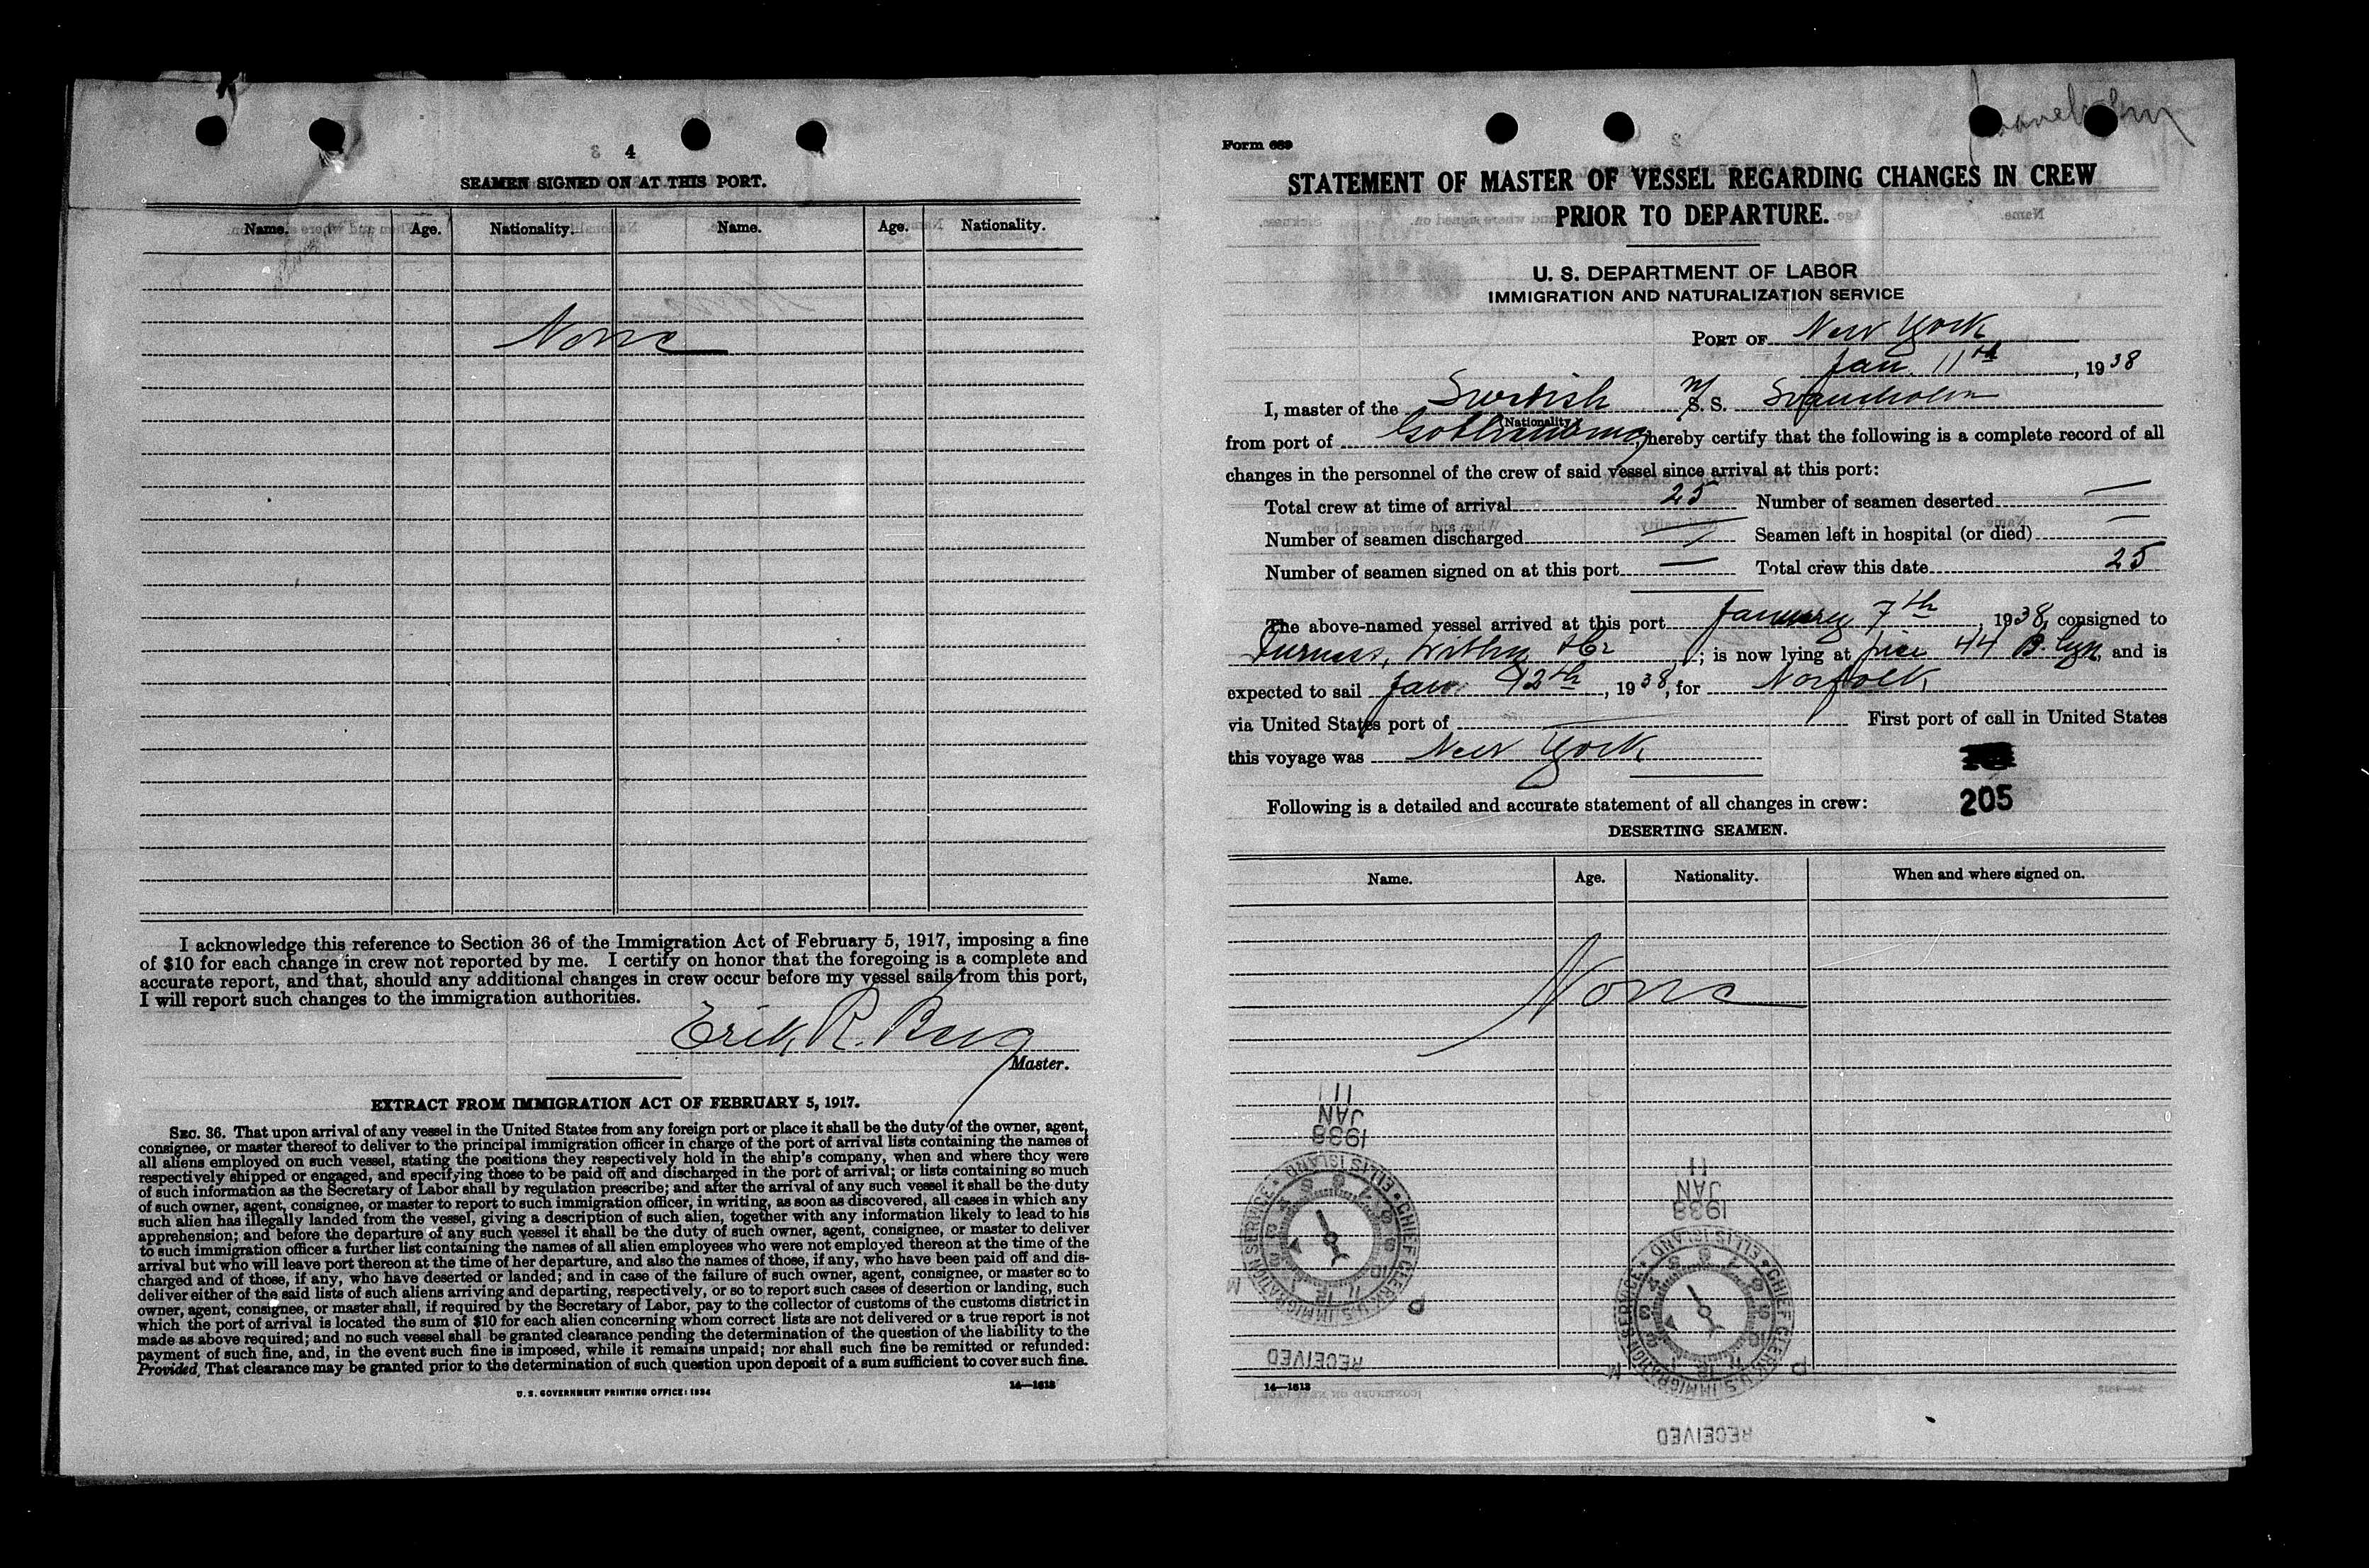 4
SEAMEN SIGNED ON AT THIS PORT.
Name. Age. Nationality. Name. Age. Nationality.
None
I acknowledge this reference to Section 36 of the Immigration Act of February 5, 1917, imposing a fine
of $10 for each change in crew not reported by me. I certify on honor that the foregoing is a complete and
accurate report, and that, should any additional changes in crew occur before my vessel sails from this port,
I will report such changes to the immigration authorities.
Erik R. Berg
Master.
EXTRACT FROM IMMIGRATION ACT OF FEBRUARY 5, 1917.
SEC. 36. That upon arrival of any vessel in the United States from any foreign port or place it shall be the duty of the owner, agent,
consignee, or master thereof to deliver to the principal immigration officer in charge of the port of arrival lists containing the names of
all aliens employed on such vessel, stating the positions they respectively hold in the ship's company, when and where they were
respectively shipped or engaged, and specifying those to be paid off and discharged in the port of arrival; or lists containing so much
of such information as the Secretary of Labor shall by regulation prescribe; and after the arrival of any such vessel it shall be the duty
of such owner, agent, consignee, or master to report to such immigration officer, in writing, as soon as discovered, all cases in which any
such alien has illegally landed from the vessel, giving a description of such alien, together with any information likely to lead to his
apprehension; and before the departure of any such vessel it shall be the duty of such owner, agent, consignee, or master to deliver
to such immigration officer a further list containing the names of all alien employees who were not employed thereon at the time of the
arrival but who will leave port thereon at the time of her departure, and also the names of those, if any, who have been paid off and dis-
charged and of those, if any, who have deserted or landed; and in case of the failure of such owner, agent, consignee, or master so to
deliver either of the said lists of such aliens arriving and departing, respectively, or so to report such cases of desertion or landing, such
owner, agent, consignee, or master shall, if required by the Secretary of Labor, pay to the collector of customs of the customs district in
which the port of arrival is located the sum of $10 for each alien concerning whom correct lists are not delivered or a true report is not
made as above required; and no such vessel shall be granted clearance pending the determination of the question of the liability to the
payment of such fine, and, in the event such fine is imposed, while it remains unpaid; nor shall such fine be remitted or refunded:
Provided, That clearance may be granted prior to the determination of such question upon deposit of a sum sufficient to cover such fine.
U. S. GOVERNMENT PRINTING OFFICE: 1934 14—1613
Svaneholm
Form 689
STATEMENT OF MASTER OF VESSEL REGARDING CHANGES IN CREW
PRIOR TO DEPARTURE.
U. S. DEPARTMENT OF LABOR
IMMIGRATION AND NATURALIZATION SERVICE
PORT OF New York
Jan. 11th, 1938
I, master of the Swedish M/S. S. Svaneholm
(Nationality)
from port of Gothenburg, hereby certify that the following is a complete record of all
changes in the personnel of the crew of said vessel since arrival at this port:
Total crew at time of arrival 25 Number of seamen deserted —
Number of seamen discharged — Seamen left in hospital (or died) —
Number of seamen signed on at this port — Total crew this date 25
The above-named vessel arrived at this port January 7th, 1938, consigned to
Furness, Withy & Co; is now lying at pier 44 B.lyn, and is
expected to sail Jan. 12th, 1938, for Norfolk
via United States port of — First port of call in United States
this voyage was New York
205
Following is a detailed and accurate statement of all changes in crew:
DESERTING SEAMEN.
Name. Age. Nationality. When and where signed on.
None
11
JAN
1938
CHIEF CLERK U.S. IMMIGRATION SERVICE • ELLIS ISLAND •
RECEIVED
11
JAN
1938
CHIEF CLERK U.S. IMMIGRATION SERVICE • ELLIS ISLAND •
RECEIVED
14—1613